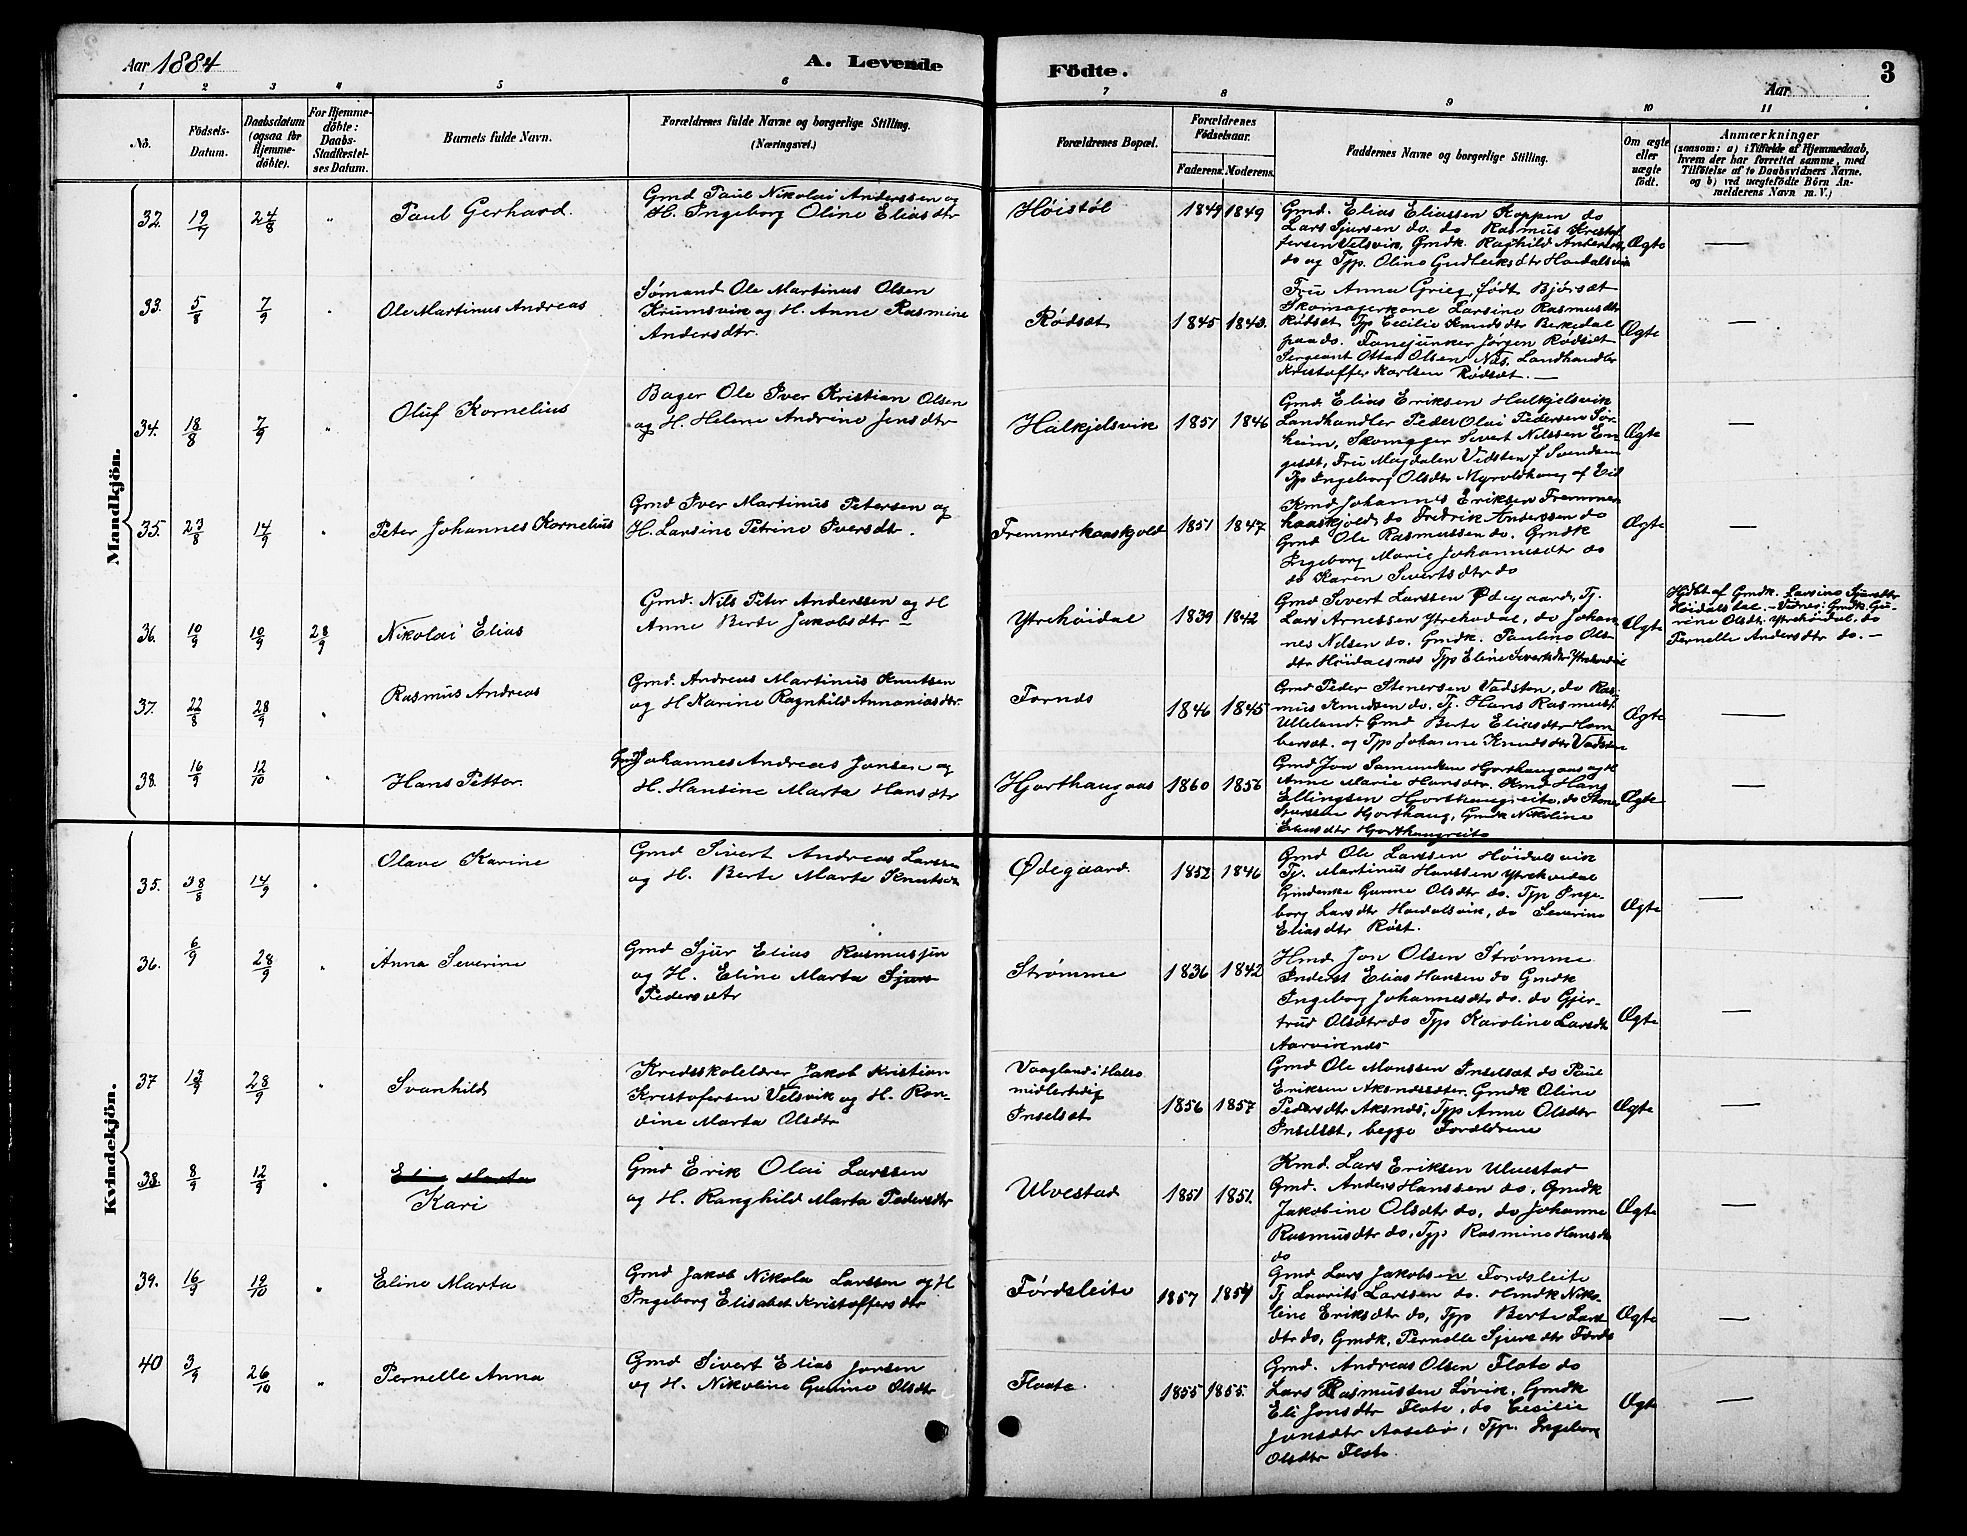 Aar 1884
A. Levende
Födte.
Aar
3
1 2 3 4 5 6 7 8 9 10 11
No.
Födsels-
Datum.
Daabsdatum
(ogsaa for
Hjemme-
döbte).
For Hjemme-
döbte:
Daabs-
Stadfæstel-
ses Datum.
Barnets fulde Navn.
Forældrenes fulde Navne og borgerlige Stilling.
(Næringsvei.)
Forældrenes Bopæl.
Forældrenes
Födselsaar.
Faderens. Moderens.
Faddernes Navne og borgerlige Stilling.
Om ægte
eller
uægte
født.
Anmærkninger
(saasom: a) i Tilfælde af Hjemmedaab,
hvem der har forrettet samme, med
Tilföielse af to Daabsvidners Navne.
og b) ved uægtefödte Börn An-
melderens Navn m. V.)
Mandkjön.
32. 19/7 24/8 " Paul Gerhard.
Gmd Paul Nikolai Anderssen og
H. Ingeborg Oline Eliasdtr
Høistøl 1849 1849
Gmd. Elias Eliassen Koppen do
Lars Sjursen do. do Rasmus Kristof
fersen Velsvik, Gmdk. Raghild Andersdtr
do og Typ. Oline Gudleiksdtr Hoidalsvik
Ægte —
33. 5/8 7/9 " Ole Martinus Andreas
Sømand Ole Martinus Olsen
Krumsvik og H. Anne Rasmine
Andersdtr.
Rødsæt 1845 1843.
Fru Anna Grieg født Bjørsæt
Skomagerkone Larsine Rasmusdtr
Rødsæt Typ Cecilie Knudsdtr Berkedal
paa do. Fanejunker Jørgen Rødsæt
Sergeant Ottar Olsen Nes. Landhandler
Kristoffer Karlsen Rødsæt. —
Ægte —
34. 18/8 7/9 " Oluf Kornelius
Bager Ole Iver Kristian Olsen
og H. Helene Andrine Jensdtr
Halkjelsvik 1851 1846
Gmd. Elias Eriksen Halkjelsvik
Landhandler Peder Olai Pedersen Sør-
heim, Skomager Sivert Nilssen En-
gesæt, Fru Magdalen Vidsten f Svendsen
Typ Ingeborg Olsdtr Myrvoldhaug af Eid
Ægte —
35. 23/8 14/9 " Peter Johannes Kornelius
Gmd Iver Martinus Petersen og
H. Larsine Petrine Iversdtr.
Fremmerhaaskjold 1851 1847
Kmd Johannes Eriksen Fremmer
haaskjold, do Fredrik Anderssen do
Gmd Ole Rasmussen do. Gmdk
Ingeborg Marie Johannesdtr do
do Karen Sivertsdtr do
Ægte —
36. 10/9 10/9 28/9 Nikolai Elias
Gmd. Nils Peter Anderssen og H
Anne Berte Jakobsdtr —
Ytrehøidal 1839 1842
Gmd Sivert Larssen Ødegaard, Tj.
Lars Arnessen Ytrehodal, do Johan-
nes Nilsen do. Gmdk. Pauline Ols-
dtr Høidalsnes Typ Eline Sivertsdtr Ytrehoidal
Ægte
Hdbt af Gmdk. Larsine Sjursdtr
Høidalsdal. — Vidner: Gmdk. Gu-
rine Olsdtr. Ytrehøidal, do
Pernelle Andersdtr do. —
37. 22/8 28/9 " Rasmus Andreas
Gmd. Andreas Martinius Knutsen
og H Karine Ragnhild Annaniasdtr.
Fornes 1846 1845
Gmd Peder Stenersen Vadsten, do Ras-
mus Knudsen do. Tj. Hans Rasmussen
Ulleland. Gmd Berte Eliasdtr Hom-
bersæt. og Typ Johanne Knudsdtr Vadsten
Ægte —
38. 16/9 12/10 " Hans Petter.
Gmd Johannes Andreas Jonsen og
H. Hansine Marta Hansdtr
Hjorthaugaas 1860 1856
Gmd Jon Samundsen Hjorthaugaas og H
Anne Marie Hansdtr. Kmd Hans
Ellingsen Hjorthaugreite, do Stene
Sjurssen Hjorthaug, Gmdk Nikoline
Eliasdtr Hjorthaugreite
Ægte —
Kvindekjön.
35. 38/8 14/9 " Olave Karine
Gmd Sivert Andreas Larssen
og H. Berte Marte Knutsdtr
Ødegaard. 1852 1846
Gmd Ole Larssen Høidalsvik
Tj. Martinus Hanssen Ytrehvidal
Gmdenke Gunne Olsdtr do. Typ Inge-
borg Larsdtr Høidalsvik, do Severine
Eliasdtr Røst.
Ægte —
36. 6/9 28/9 " Anna Severine
Gmd Sjur Elias Rasmussen
og H. Eline Marta Sjurs
Pedersdtr
Strømme 1836 1842
Hmd Jon Olsen Strømme
Inderst Elias Hansen do Gmdk
Ingeborg Johannesdtr do. do Gjer-
trud Olsdtr do Typ Karoline Larsdtr
Aarviknes
Ægte —
37 13/9 28/9 " Svanhild
Kredsskolelærer Jakob Kristian
Kristofersen Velsvik og H. Ron-
dine Marta Olsdtr
Vaagland i Halse
midlertidig
Inselsæt 1856 1857
Gmd Ole Monssen Inselsæt do Paul
Eriksen Aksnessæter. Gmdk Oline
Pedersdtr Aksnes, Typ Anne Olsdtr
Inselsæt, begge Forældrene
Ægte —
38. 8/9 12/9 " Eline Marta
Kari
Gmd Erik Olai Larssen
og H. Ranghild Marta Pedersdtr
Ulvestad 1851 1851.
Kmd. Lars Eriksen Ulvestad
Gmd. Anders Hanssen do, Gmdk
Jakobine Olsdtr do, do Johanne
Rasmusdtr do, Typ Rasmine Hansdtr
do
Ægte —
39. 16/9 12/10 " Eline Marta
Gmd Jakob Nikola Larssen og H
Ingeborg Elisabet Kristoffersdtr
Førdsleite 1857 1854
Gmd Lars Jakobsen Fordsleite
Tj Laurits Larssen do. Hmdk Niko-
line Eriksdtr do, Typ Berte Lars
dtr do, Gmdk, Pernelle Sjursdtr Førde
Ægte —
40 3/9 26/10 " Pernelle Anna
Gmd Sivert Elias Jonsen
og H. Nikoline Gurine Olsdtr
Floate. 1855 1855.
Gmd. Andreas Olsen Flote do
Lars Rasmussen Løvik, Gmdk
Eli Jonsdtr Flote, do Cecilie
Jonsdtr Aasebø, Typ. Ingeborg
Olsdtr Flote.
Ægte —